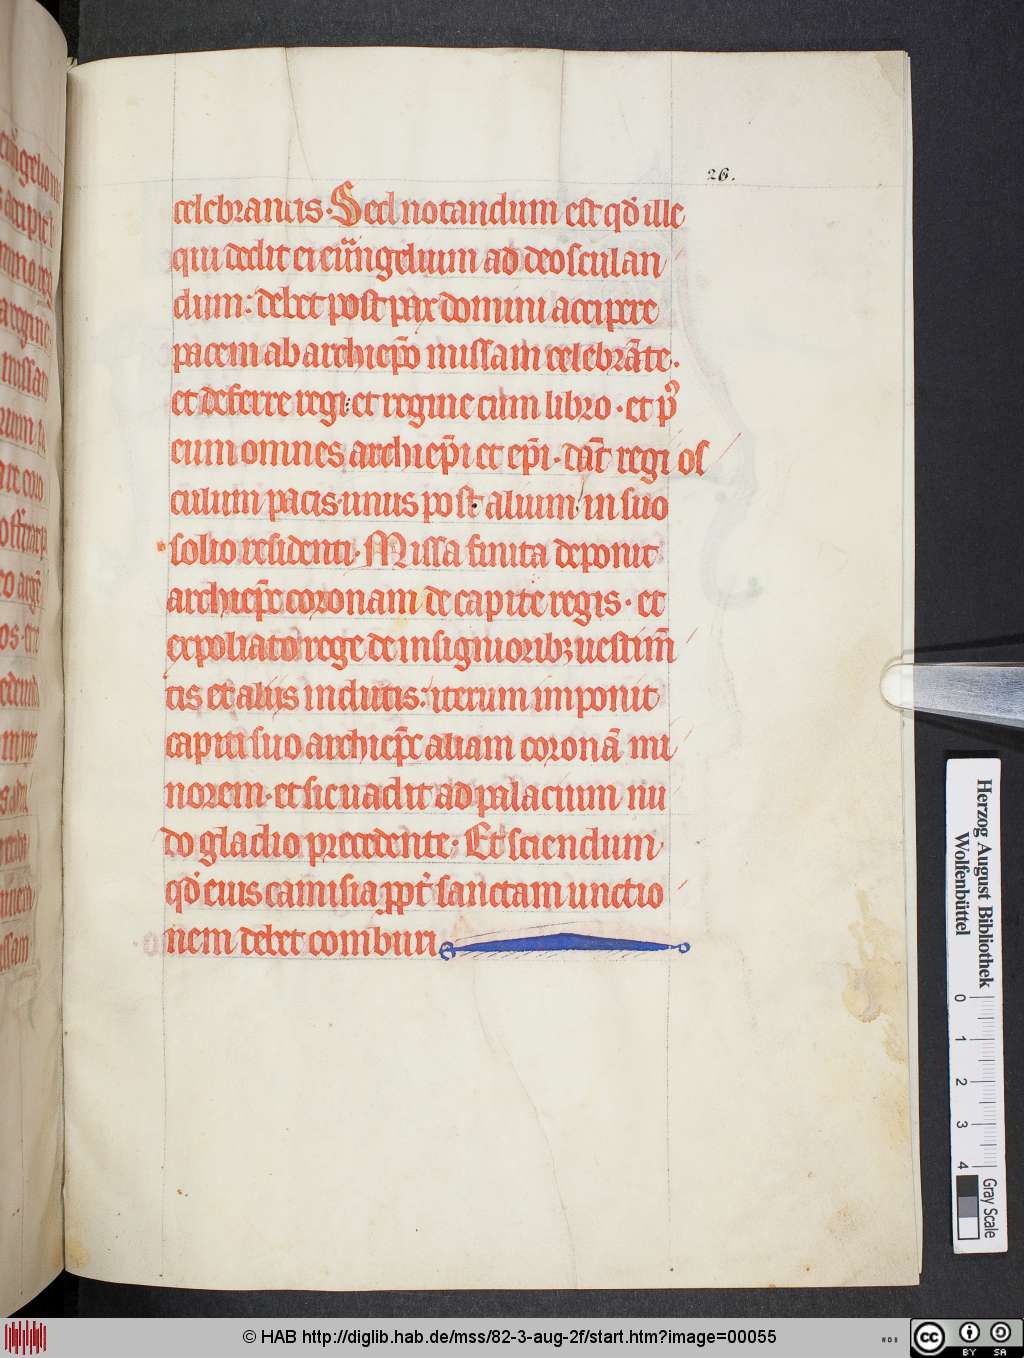 26.
celebrantis. Sed notandum est qd̾ ille
qui dedit ei euangelium ad deosculan
dum: debet post pax domini accipere
pacem ab archiep̄o missam celebrāte.
et deferre regi et regine cum libro. et p̾
eum omnes archiep̄i et ep̄i. dāt regi os
culum pacis. unus post alium in suo
solio residenti. Missa finita deponit
archiep̄c coronam de capite regis. et
expoliato rege de insignioribꝫ uestim̄
tis et aliis indutis: iterum imponit
capiti suo archiep̄c aliam coronā mi
norem. et sic uadit ad palacium nu
do gladio precedente. Et sciendum
qd̾ eius camisia ꝓpt̾ sanctam unctio
nem debet comburi
Herzog August Bibliothek
Wolfenbüttel
0 1 2 3 4
Gray Scale
© HAB http://diglib.hab.de/mss/82-3-aug-2f/start.htm?image=00055
cc
BY SA